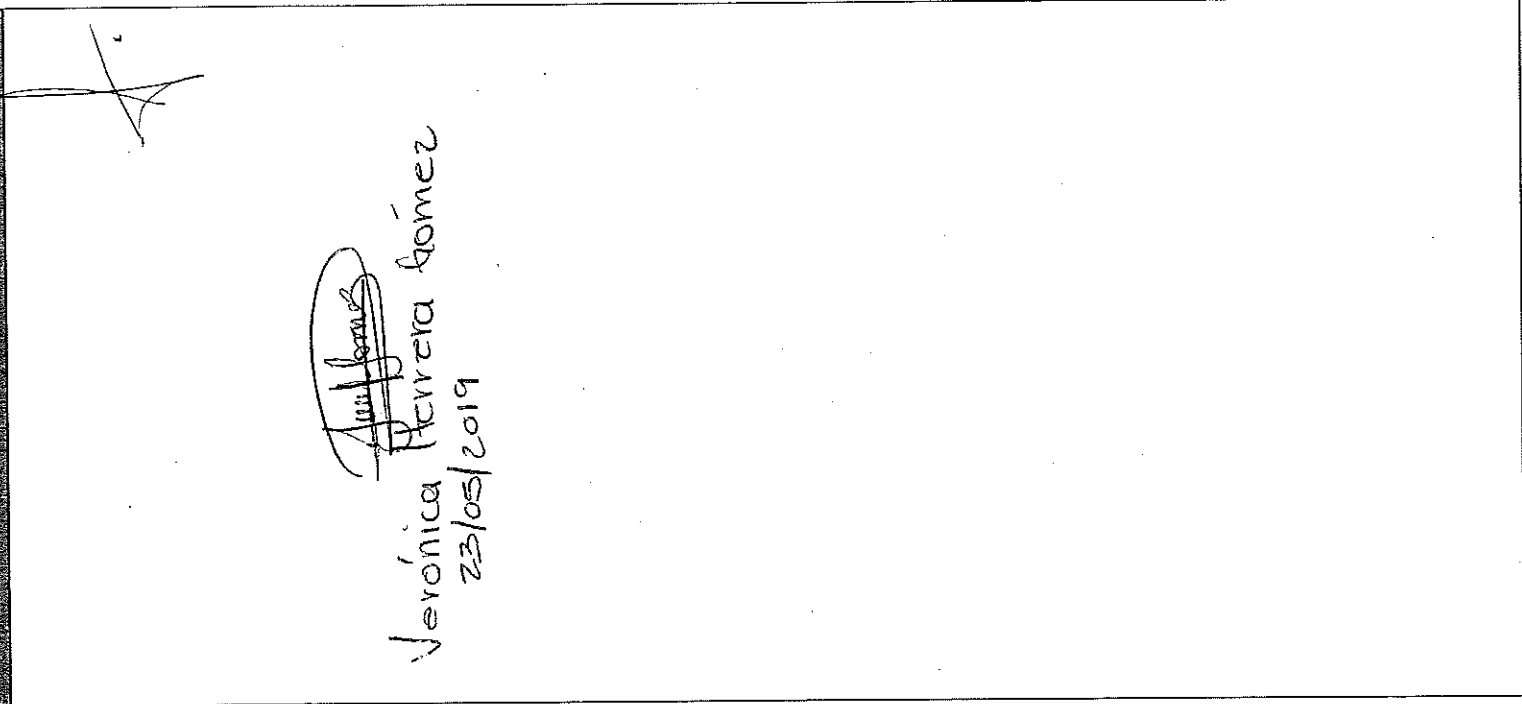 Verónica Herrera Gómez
23/05/2019